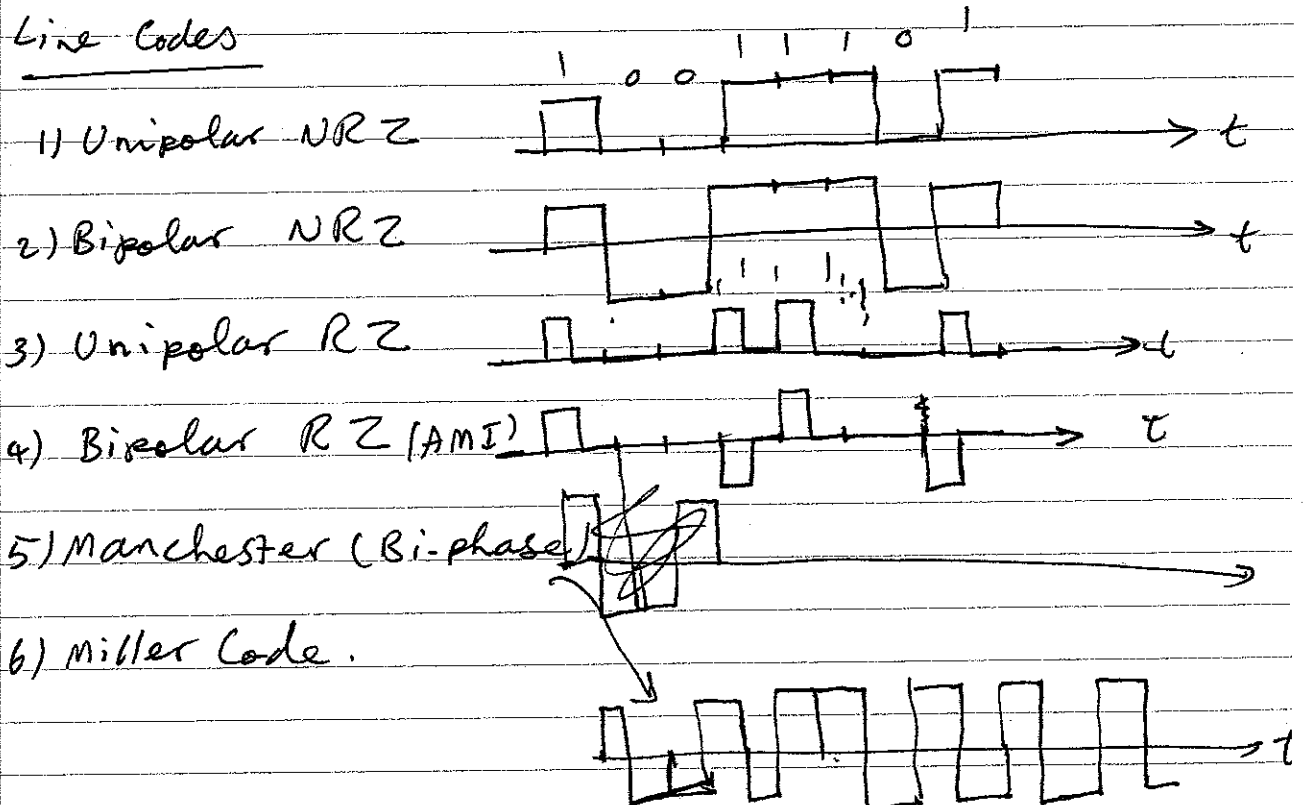 Line Codes
1 0 0 1 1 1 0 1
1) Unipolar NRZ t
2) Bipolar NRZ t
1 1 1
3) Unipolar RZ t
4) Bipolar RZ (AMI) t
5) Manchester (Bi-phase)
6) Miller Code.
t